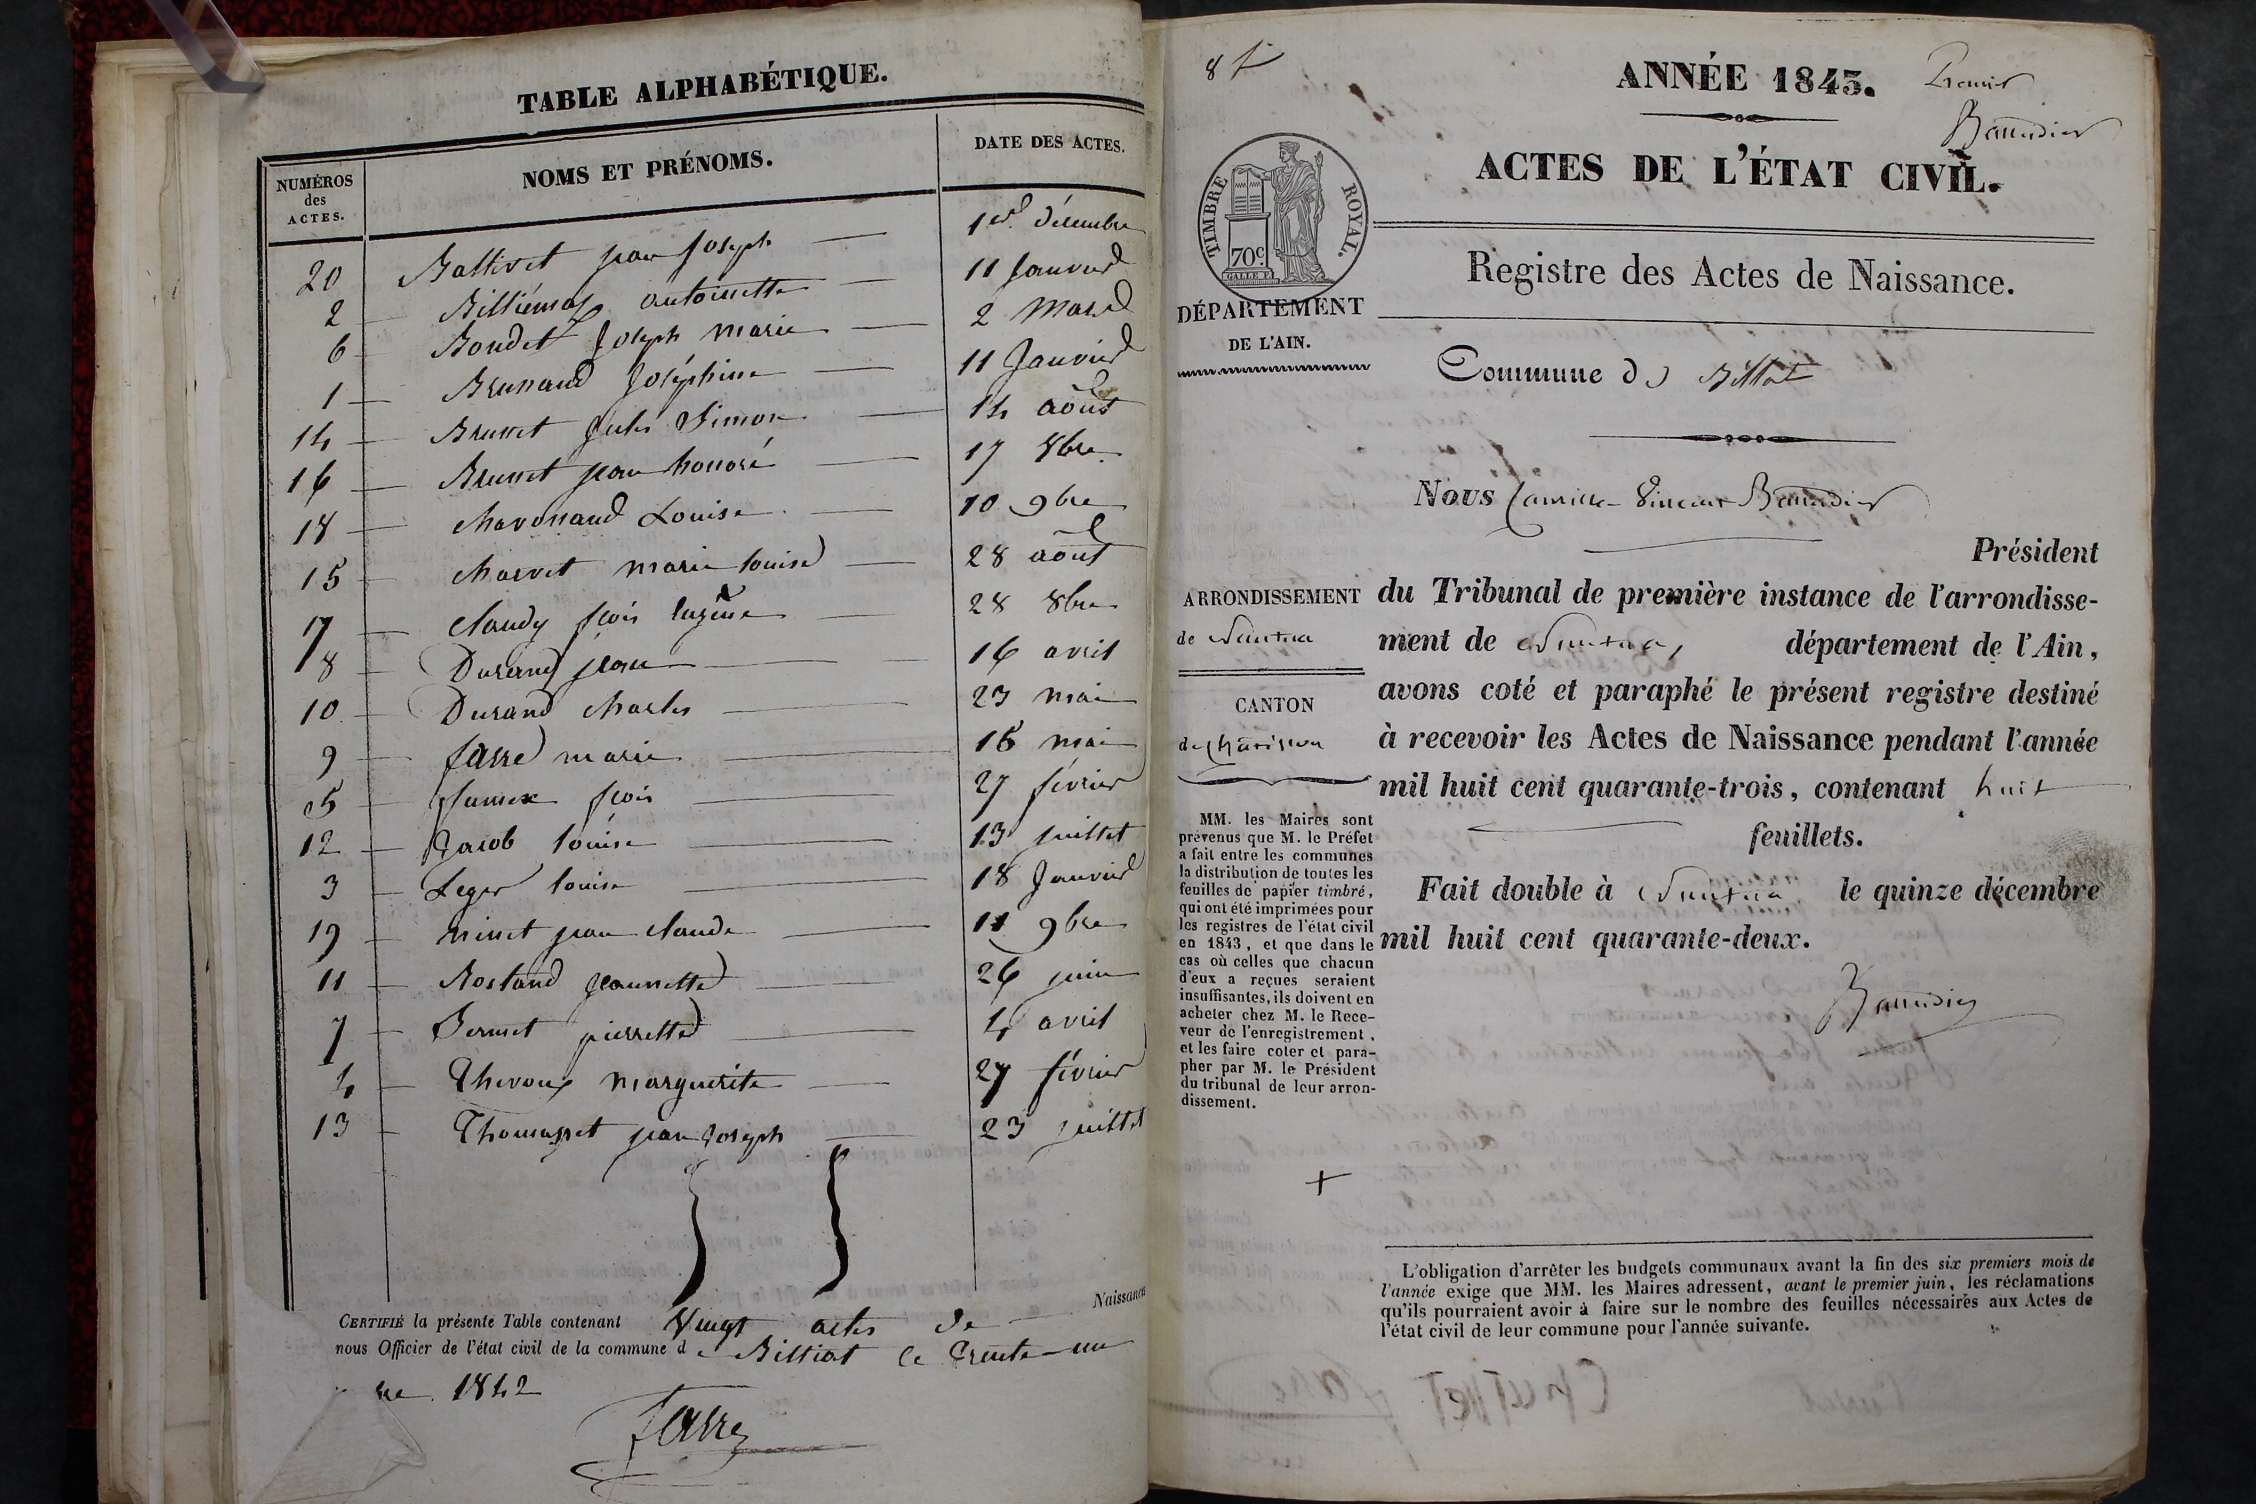 TABLE ALPHABÉTIQUE.
NUMÉROS des ACTES.
NOMS ET PRÉNOMS.
DATE DES ACTES.
20 Ballivet jean Joseph 1er décembre
2 Billiémaz antoinette 11 Janvier
6 Boudet Joseph marie 2 Mars
1 Brunand Joséphine 11 Janvier
14 Brunet Jules Simon 14 août
16 Brunet jean honoré 17 8bre
18 Chavonand Louise 10 9bre
15 Charvet marie louise 28 août
17 Claudy fçois Eugène 28 8bre
8 Durand jean 16 avril
10 Durand Charles 23 mai
9 farre marie 16 mai
5 fçois 27 février
12 Jacob louise 13 juillet
3 Leger louise 18 Janvier
19 ninet jean Claude 11 9bre
11 Rostand Jeannette 26 juin
7 Sermet pierrette 4 avril
4 Thevoux marguerite 27 février
13 Thomasset jean Joseph 23 juillet
CERTIFIÉ la présente Table contenant Vingt actes de Naissance
nous Officier de l'état civil de la commune d e Billiat le trente-un
bre 1842
farre
8 f
ANNÉE 1843. Premier
Baudier
ACTES DE L'ÉTAT CIVIL.
TIMBRE ROYAL.
70c.
GALLE F.
Registre des Actes de Naissance.
DÉPARTEMENT
DE L'AIN.
Commune de Billiat
Nous Camille Vincent Baudier
Président
ARRONDISSEMENT
de Nantua
CANTON
de Châtillon
du Tribunal de première instance de l'arrondisse-
ment de Nantua, département de l'Ain,
avons coté et paraphé le présent registre destiné
à recevoir les Actes de Naissance pendant l'année
mil huit cent quarante-trois, contenant huit
feuillets.
Fait double à Nantua le quinze décembre
mil huit cent quarante-deux.
Baudier
MM. les Maires sont
prévenus que M. le Préfet
a fait entre les communes
la distribution de toutes les
feuilles de papier timbré,
qui ont été imprimées pour
les registres de l'état civil
en 1843, et que dans le
cas où celles que chacun
d'eux a reçues seraient
insuffisantes, ils doivent en
acheter chez M. le Rece-
veur de l'enregistrement,
et les faire coter et para-
pher par M. le Président
du tribunal de leur arron-
dissement.
L'obligation d'arrêter les budgets communaux avant la fin des six premiers mois de
l'année exige que MM. les Maires adressent, avant le premier juin, les réclamations
qu'ils pourraient avoir à faire sur le nombre des feuilles nécessaires aux Actes de
l'état civil de leur commune pour l'année suivante.